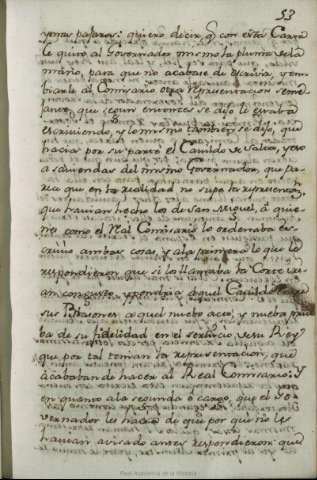 53
y mas papeles: quiero decir q.e con esta Carta
le quitó al Governador mismo la pluma de la
mano, para que no acabase de escrivir, y em-
biarle al Comisario otra representacion semé-
ante, que segun entonces se dijo le estaba
escriviendo, y lo mismo tambien se dijo, que
hacia por su parte el Cavildo de Salta, y eso
a saviendas del mismo Governador, que
que en la realidad no supo la representaz.n
que havian hecho los de San Miguel, á quie-
nes como el R.al Comisario lo ordenaba es-
crivió ambas cosas y a la primera lo que le
respondieron que si los llamaba la Corte
con gusto, y pondria aquel Cavildo
sus Prisiones a aquel nuebo acto, y nueba prue
ba de su fidelidad en el servicio de su Rey
que por tal tenian la representacion, que
acababan de hacer al Real Comisario: Y
en quanto a la segunda ó cargo, que el Go-
vernador les hacia de que por qué no le
havian avisado antes respondieron: que
Real Academia de la Historia